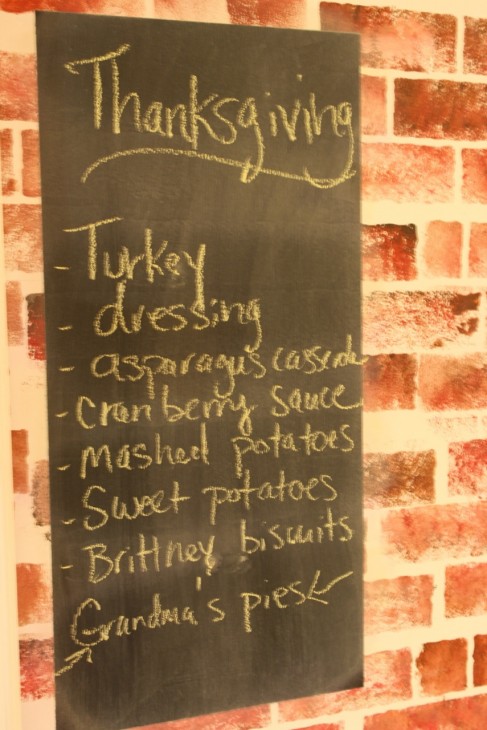 Thanksgiving
- Turkey
- dressing
- asparagus casserole
- cranberry sauce
- mashed potatoes
- Sweet potatoes
- Brittney biscuits
Grandma's pies